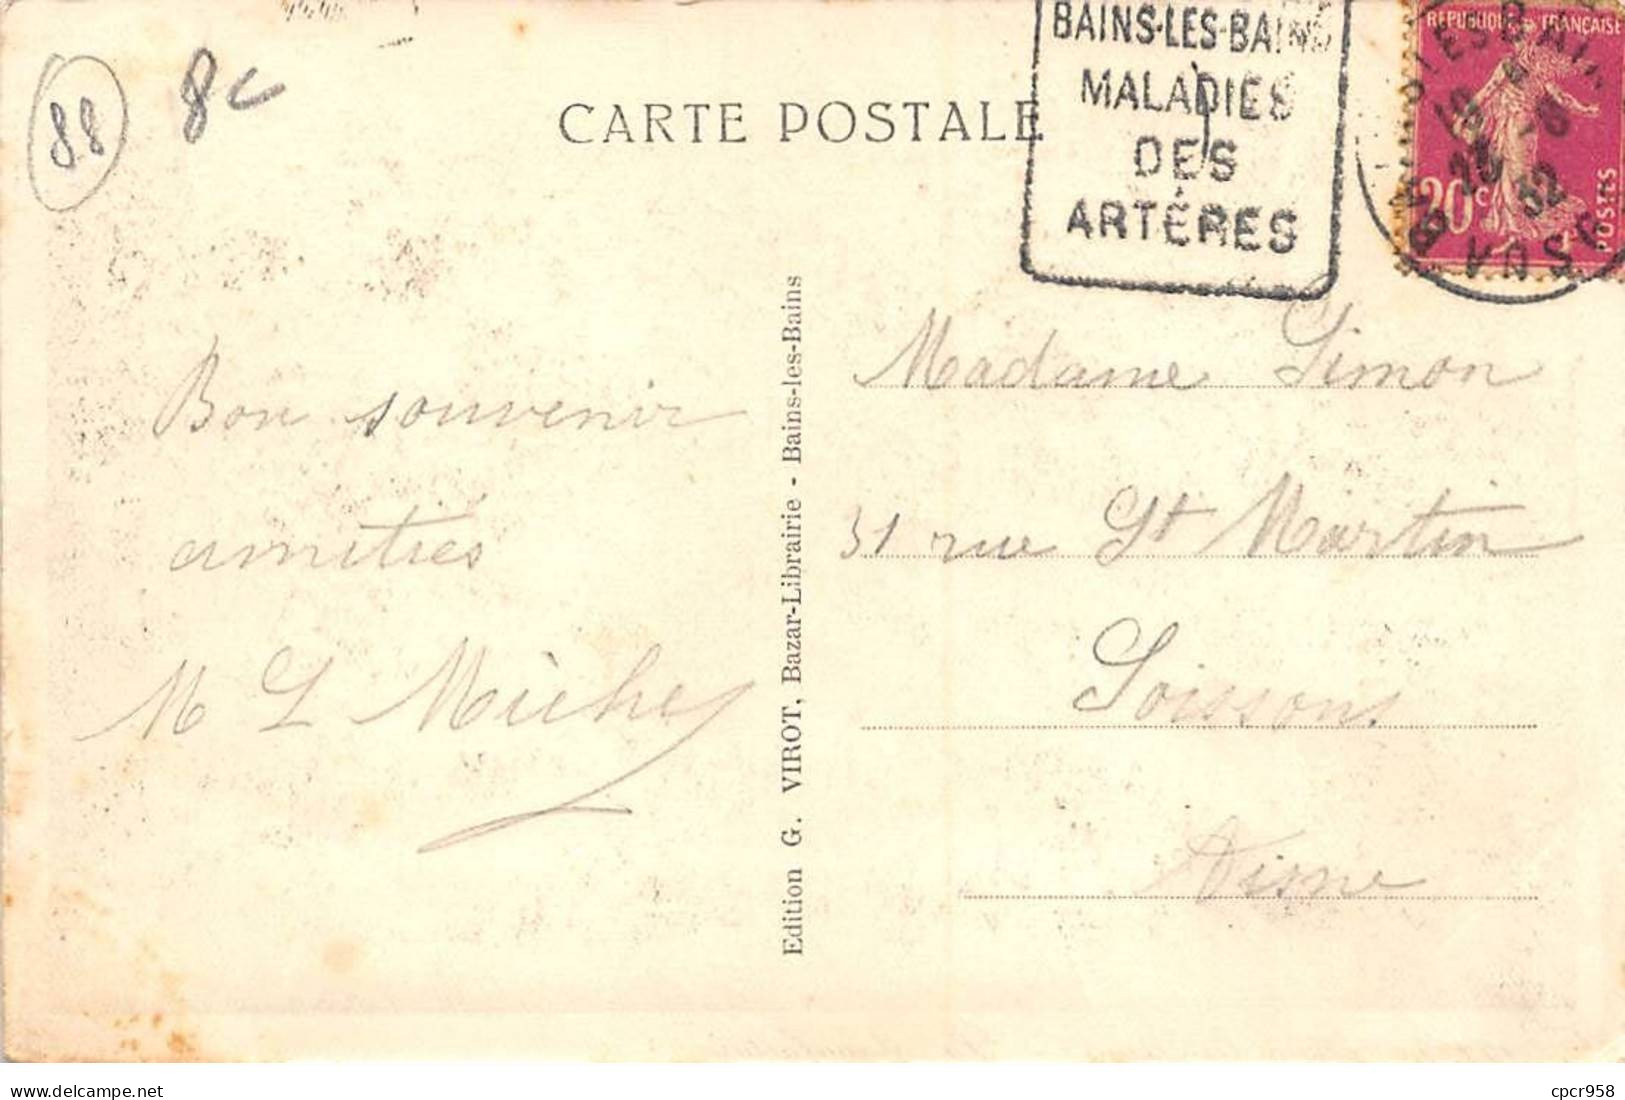 88
8c
CARTE POSTALE
BAINS-LES-BAINS
MALADIES
DES
ARTÈRES
REPUBLIQUE FRANÇAISE
20c
POSTES
32
Bon souvenir
amitiés
M L Miche
Edition G. VIROT, Bazar-Librairie - Bains-les-Bains
Madame Simon
31 rue St Martin
Soissons
Aisne
www.delcampe.net
cpcr958